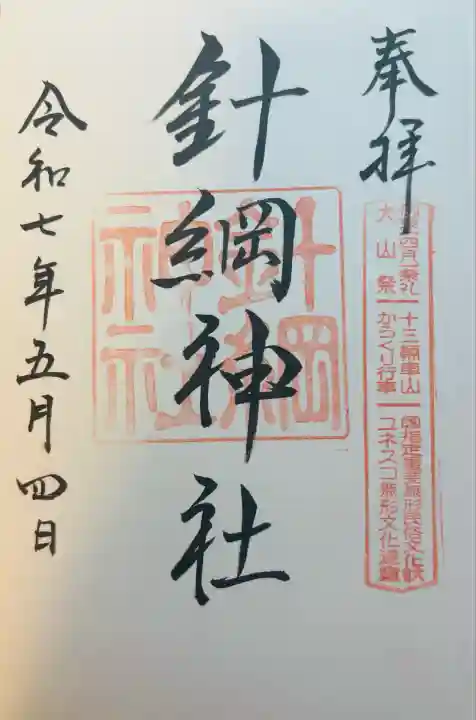 奉拝
四月祭礼
大山祭
十三輛車山
からくり行事
国指定重要無形民俗文化財
ユネスコ無形文化遺産
針綱神社
針綱神社
令和七年五月四日